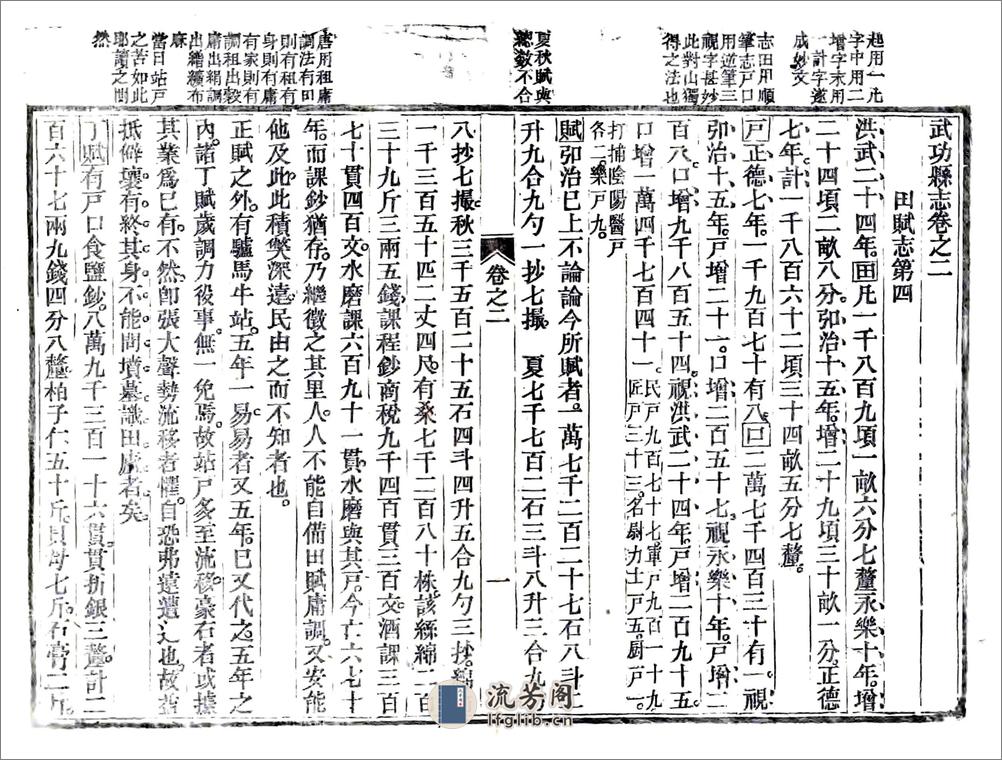 起用一凡
字中用二
增字末用
一計字遂
成妙文
志田用順
筆志戶口
用逆筆三
視字甚妙
此對山獨
得之法也
夏秋賦與
總數不合
唐用租庸
調法有田
則有租有
身則有庸
有家則有
調租出穀
庸出絹調
出繒纊布
麻
當日站戶
之苦如此
耶讀之惘
然
武功縣志卷之二
田賦志第四
洪武二十四年。田凡一千八百九頃一畝六分七釐。永樂十年。增
二十四頃二畝八分。弘治十五年。增二十九頃三十畝一分。正德
七年。計一千八百六十二頃三十四畝五分七釐。
戶正德七年。一千九百七十有八。口二萬七千四百三十有一。視
弘治十五年。戶增二十一。口增二百五十七。視永樂十年。戶增二
百八。口增九千八百五十四。視洪武二十四年。戶增二百九十五。
口增一萬四千七百四十一。民戶九百七十七。軍戶九百一十
匠戶三十三。名尉力士戶五。廚戶一。
打捕陰陽醫戶
各二。樂戶九。
賦弘治已上不論。論今所賦者。一萬七千二百二十七石八斗二
升九合九勺一抄七撮。 夏七千七百二石三斗八升三合九勺
卷之二
一
八抄七撮。秋三千五百二十五石四斗四升五合九勺三抄。絹
一千三百五十匹二丈四尺。有桑七千二百八十株。該絲綿二百
三十九斤三兩五錢。課程鈔商稅九千四百貫三百文。酒課三百
七十貫四百文。水磨課六百九十一貫。水磨與其戶。今亡六七十
年。而課鈔猶存。乃繼徵之其里人。人不能自備田賦庸調。又安能
他及此。此積獘深遠。民由之而不知者也。
正賦之外。有驢馬牛站。五年一易。易者又五年。已又代之。五年之
內。諸丁賦歲調力役事。無一免焉。故站戶多至流移。豪右者或據
其業為已有。不然。卽張大聲勢。流移者懼。自恐弗遠遭之也。故皆
抵僻壤。有終其身。不能問墳墓。識田廬者矣。
丁賦有戶口食鹽鈔。八萬九千三百一十六貫。貫折銀三釐。計二
百六十七兩九錢四分八釐。柏子仁五十斤。貝母七斤。石膏二九
流芳阁
lfglib.cn